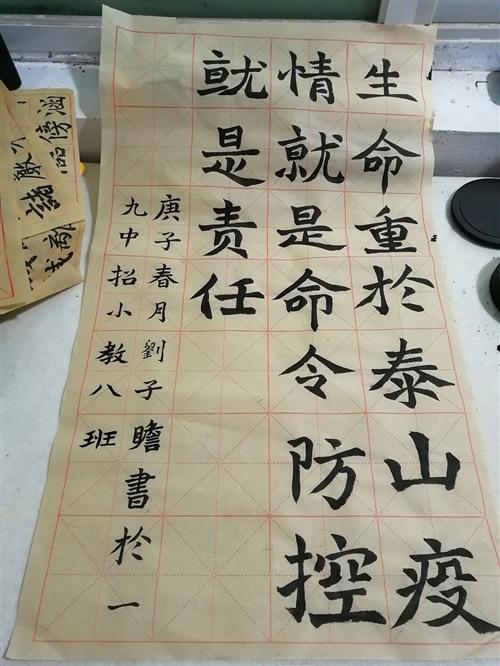 生命重於泰山疫
情就是命令防控
就是责任
庚子春月劉子瞻書於一
九中招小教八班